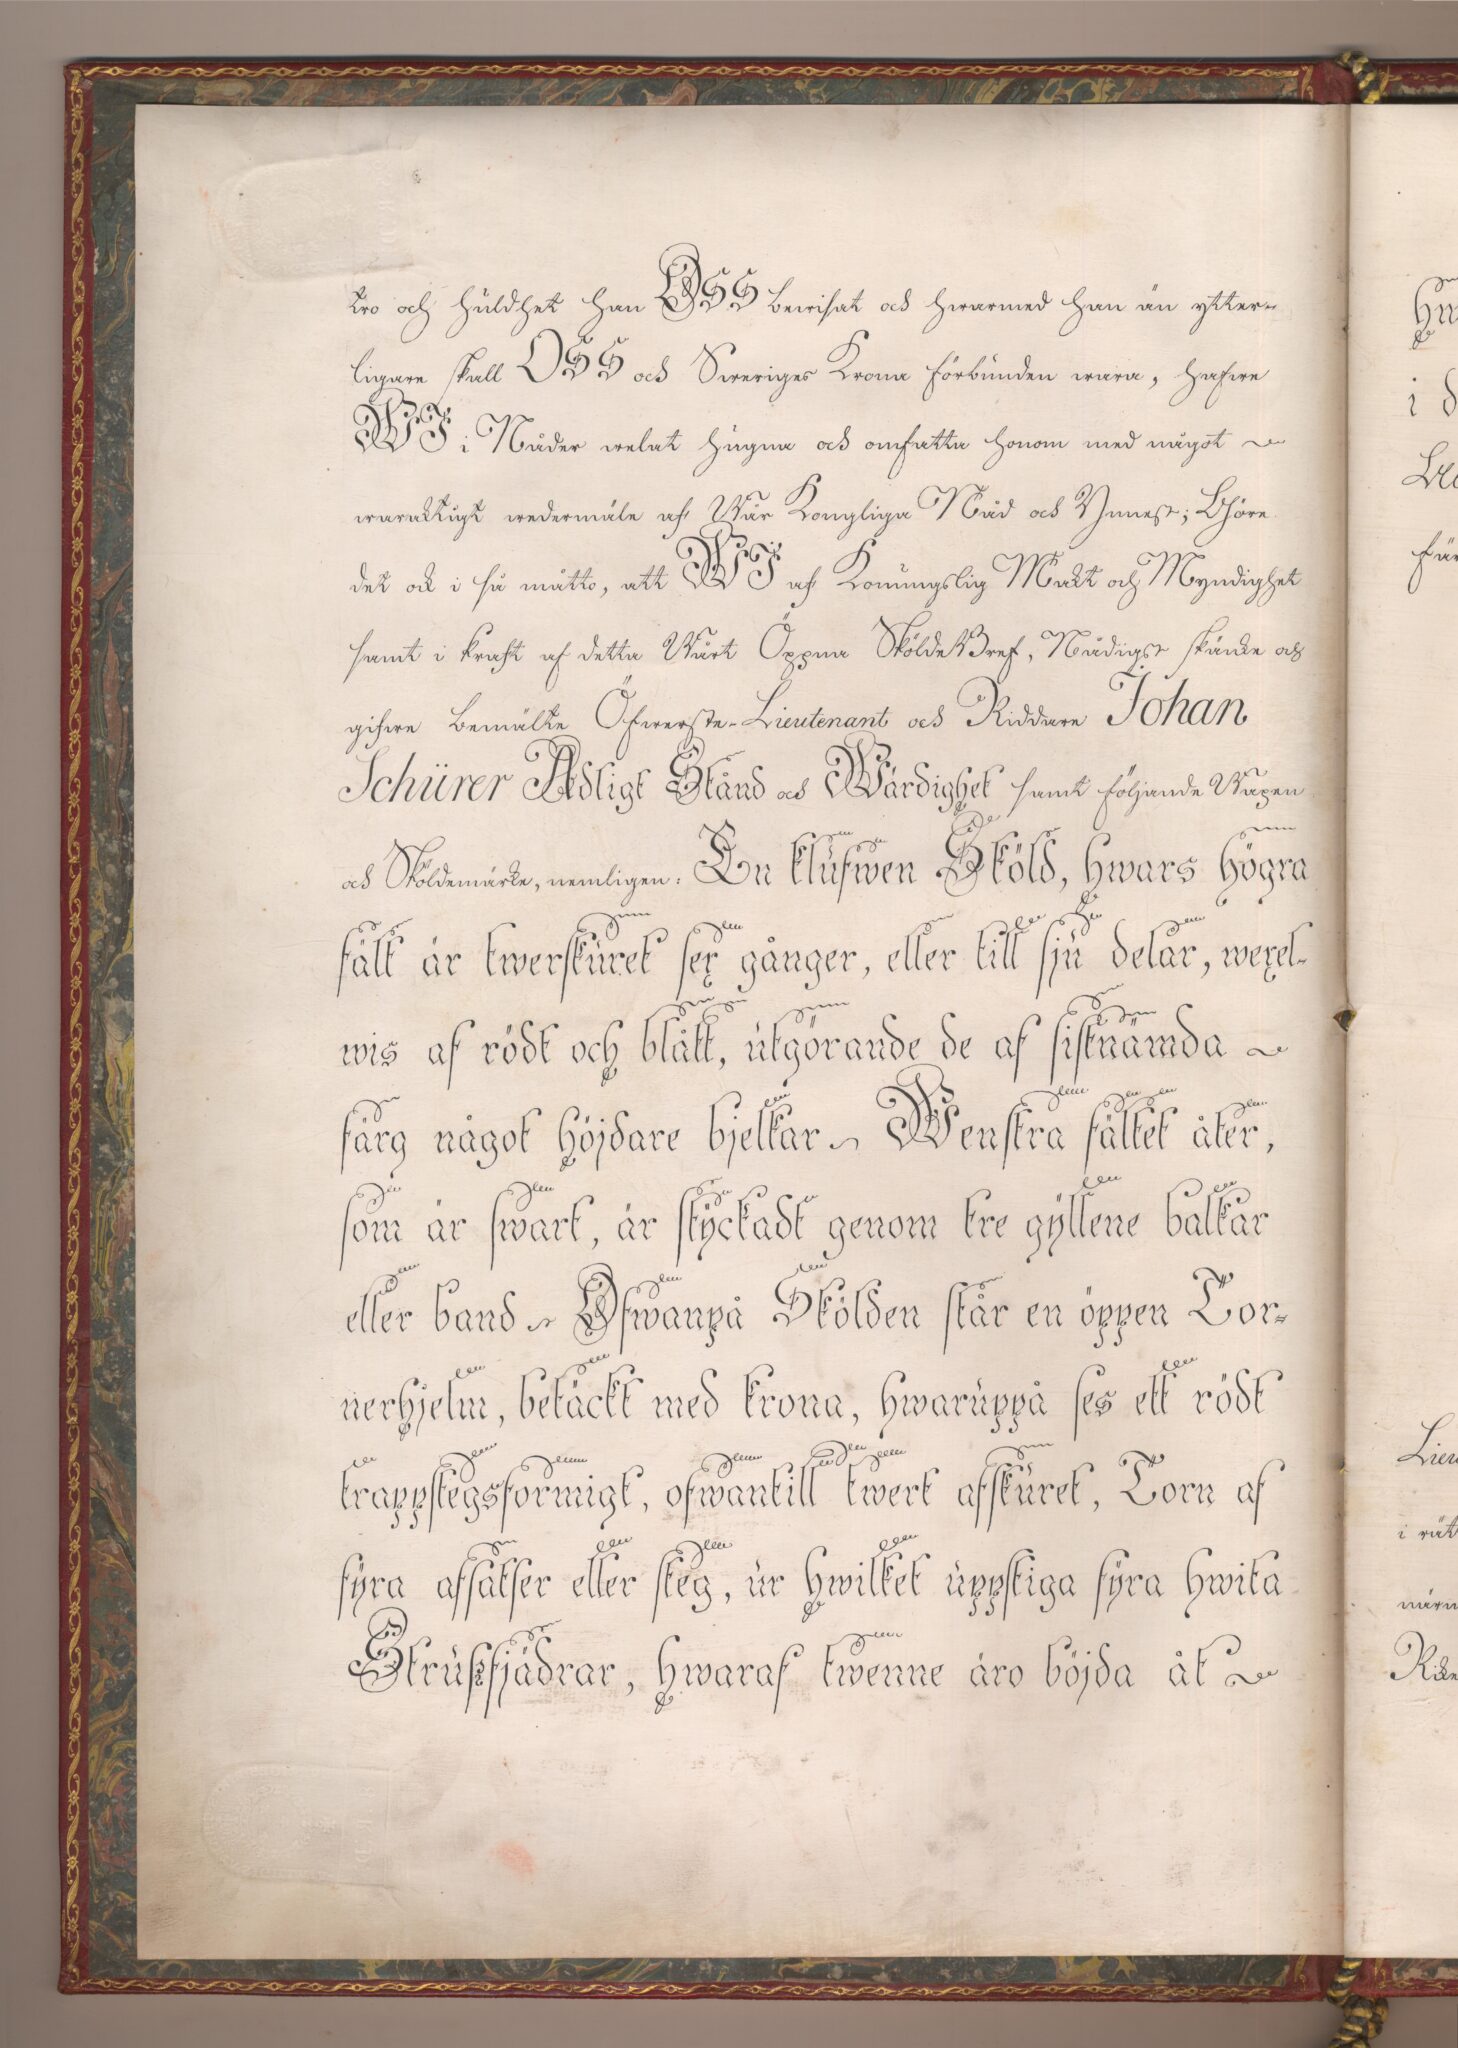 tro och huldhet han OSS bewisat och hwarmed han än ytter-
ligare skall OSS och Sweriges Krona förbunden wara, hafwe
WI i Nåder welat hugna och omfatta honom med något
waraktigt wedermäle af Wår Kongliga Nåd och Ynnest; Giöre
det ock i så måtto, att WI af Konungslig Makt och Myndighet
samt i kraft af detta Wårt Öppna SköldeBref, Nådigst skänke och
gifwe bemälte Öfwerste-Lieutenant och Riddare Johan
Schürer Adligt Stånd och Wärdighet samt följande Wapen
och Sköldemärke, nemligen: En klufwen Sköld, hwars högra
fält är twerskuret sex gånger, eller till sju delar, wexel-
wis af rödt och blått, utgörande de af sistnämda
färg något höjdare bjelkar Wenstra fältet åter,
som är swart, är styckadt genom tre gyllene balkar
eller band Ofwanpå Skölden står en öppen Tor-
nerhjelm, betäckt med krona, hwaruppå ses ett rödt
trappstegsformigt, ofwantill twert afskuret, Torn af
fyra afsatser eller steg, ur hwilket uppstiga fyra hwita
Strußfjädrar, hwaraf twenne äro böjda åt
Hw
i d
Bl
får
Lieu
i rät
närw
Rike